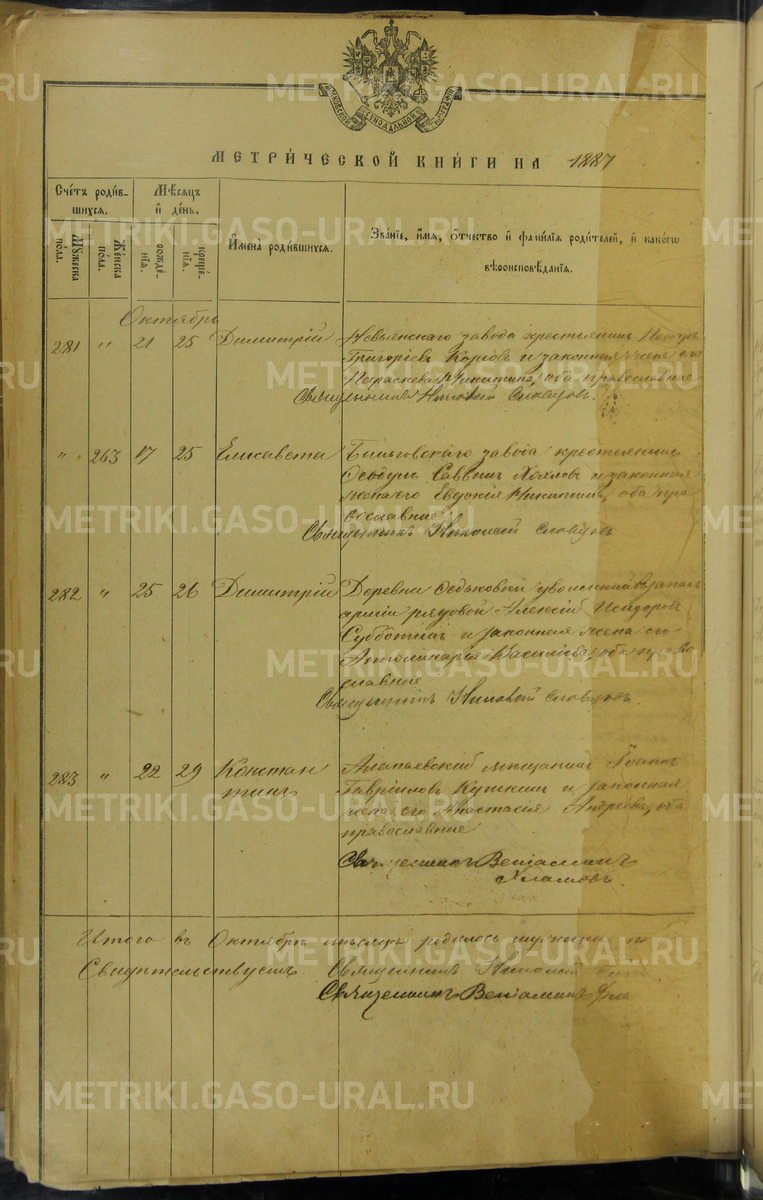 МОСКОВСКОЙ СѴНОДАЛЬНОЙ ТИПОГРАФІИ
МЕТРИ́ЧЕСКОЙ КНИ́ГИ НА 1887
Сче́тъ роди́в-
шихся.
Мѣ́сяцъ
и҆ де́нь.
Му́жеска
по́ла.
Же́нска
по́ла.
рожде-
нїѧ.
креще́-
нїѧ.
И҆мена̀ роди́вшихся.
Зва́нїе, и҆́мя, ѻ҆́тчество и҆ фами́лїя роди́телей, и҆ како́гѡ
вѣроисповѣ́данїя.
Октябрь
281 " 21 25 Димитрій Невьянскаго завода крестьянинъ Петръ
Григоріевъ и законная жена его
Параскева Никитина, оба православные
Священникъ Николай Словцовъ.
" 263 17 25 Елисавета завода крестьянинъ
Ѳеодулъ Саввинъ Хохловъ и законная
жена его Евдокія Никитина, оба пра
вославные
Священникъ Николай Словцовъ
282 " 25 26 Димитрій Деревни уволенный въ запасъ
арміи рядовой Алексій Исидоровъ
Субботинъ и законная жена его
Васильева, оба право
славные
Священникъ Николай Словцовъ.
283 " 22 29 Констан
тинъ
Алапаевскій мѣщанинъ Іоаннъ
Гавріиловъ и законная
жена его Анастасія Андреева, оба
православные
Священникъ Веніаминъ
Хламовъ.
Итого въ Октябрѣ мѣсяцѣ родилось мужска по
Свидѣтельствуемъ Священникъ Николай
Священникъ Веніаминъ
METRIKI.GASO-URAL.RU